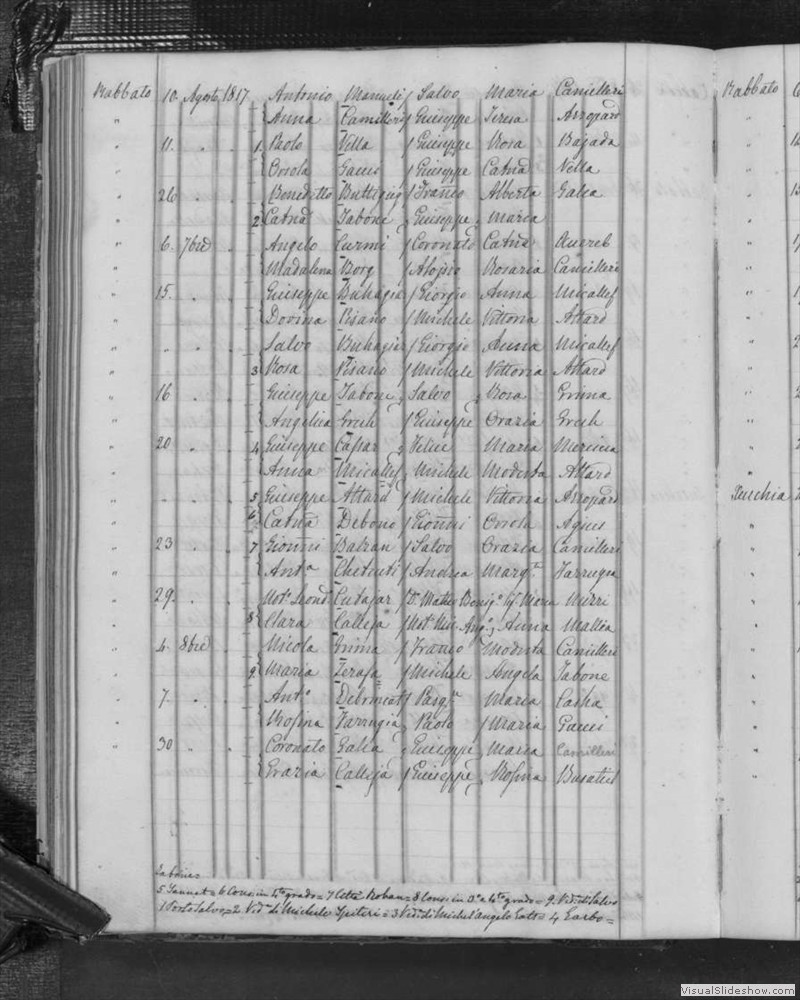 Rabbato 10. Agosto 1817 Antonio Manueli Salvo Maria Camilleri
" Anna Camilleri Giuseppe Teresa Azzopardi
" 11. " " 1. Paolo Vella Giuseppe Rosa Bajada
" Orsola Gauci Giuseppe Catna Vella
" 26 " " Benedetto Buttigieg Franco Alberta Galea
" 2 Catna Tabone Giuseppe Maria
" 6. 7bre " Angelo Curmi Coronato Catna
" Madalena Borg Aloisio Rosaria Camilleri
" 15. " " Giuseppe Buhagiar Giorgio Anna Micallef
" Dovina Pisano Michele Vittoria Attard
" " " " Salvo Buhagiar Giorgio Anna Micallef
" 3 Rosa Pisano Michele Vittoria Attard
" 16 " " Giuseppe Tabone Salvo Rosa Grima
" Angelica Grech Giuseppe Grazia Grech
" 20 " " 4 Giuseppe Caspar Felice Maria Mercieca
" Anna Micallef Michele Modesta Attard
" " " " 5 Giuseppe Attard Michele Vittoria Azzopardi
" 6 Catna Debono Gionni Orsola Agius
" 23 " " 7 Gionni Balzan Salvo Grazia Camilleri
" Anta Chetcuti Andrea Margta Farrugia
" 29. " " Notr Leond Cutajar Dr Matteo Maria Mirri
" 8 Clara Calleja Notr Anna Mallia
" 4. 8bre " Nicola Grima Franco Modesta Camilleri
" 9. Maria Zerafa Michele Angela Tabone
" 7. " " Anto Debrincat Pasqle Maria Casha
" Rosina Farrugia Paolo Maria Gauci
" 30 " " Coronato Galea Giuseppe Maria Camilleri
" Grazia Calleja Giuseppe Rosina Busuttil
Rabbato
Xeuchia
Tabone=
5 Sannat= 6 Cons: in 4to grado= 7 Città Rohan= 8 Cons: in 3o a 4to grado= 9. Vida di Salvo
1 Porto Salvo= 2. Vida di Michele Spiteri= 3 Vida di Michel'angelo Gatt= 4 Garbo=
VisualSlideshow.com